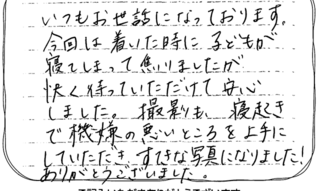 いつもお世話になっております。
今回は着いた時に子どもが
寝てしまって焦りましたが
快く待っていただけて安心
しました。撮影も、寝起き
で機嫌の悪いところを上手に
していただき、すてきな写真になりました!
ありがとうございました。